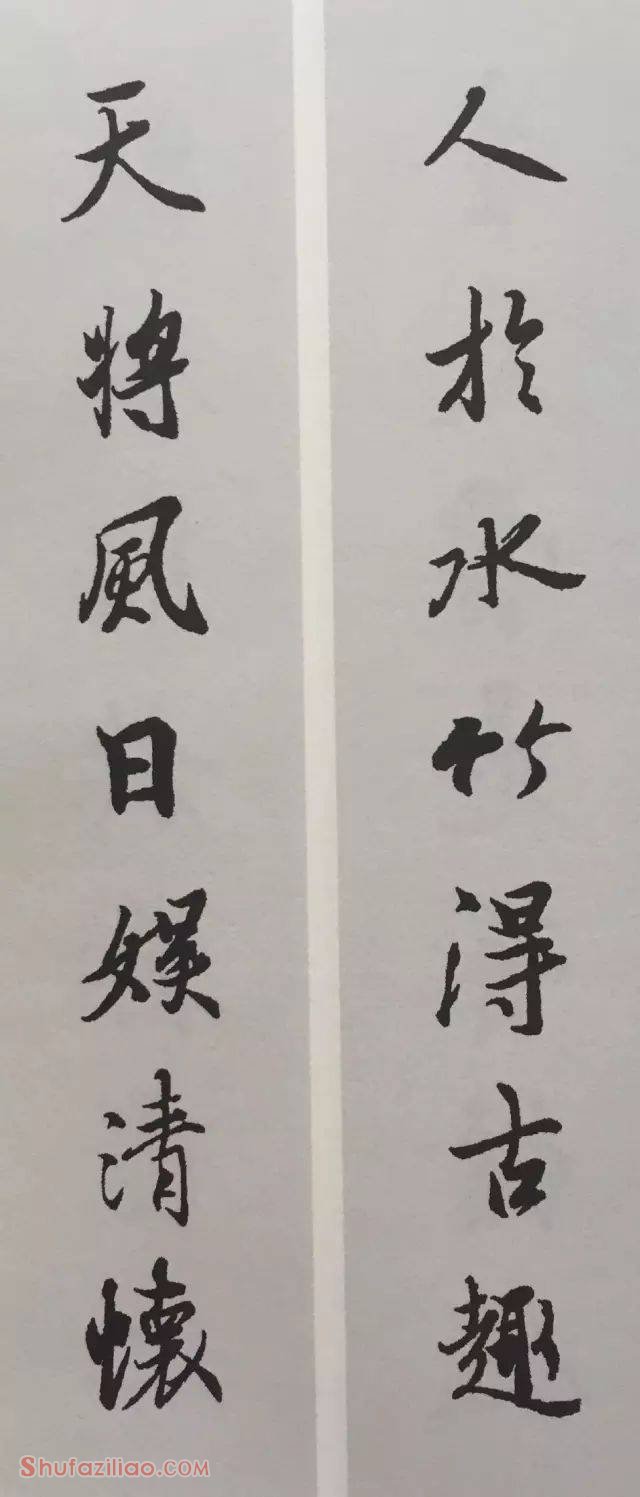 人於水竹得古趣
天將風日娛清懷
Shufaziliao.COM